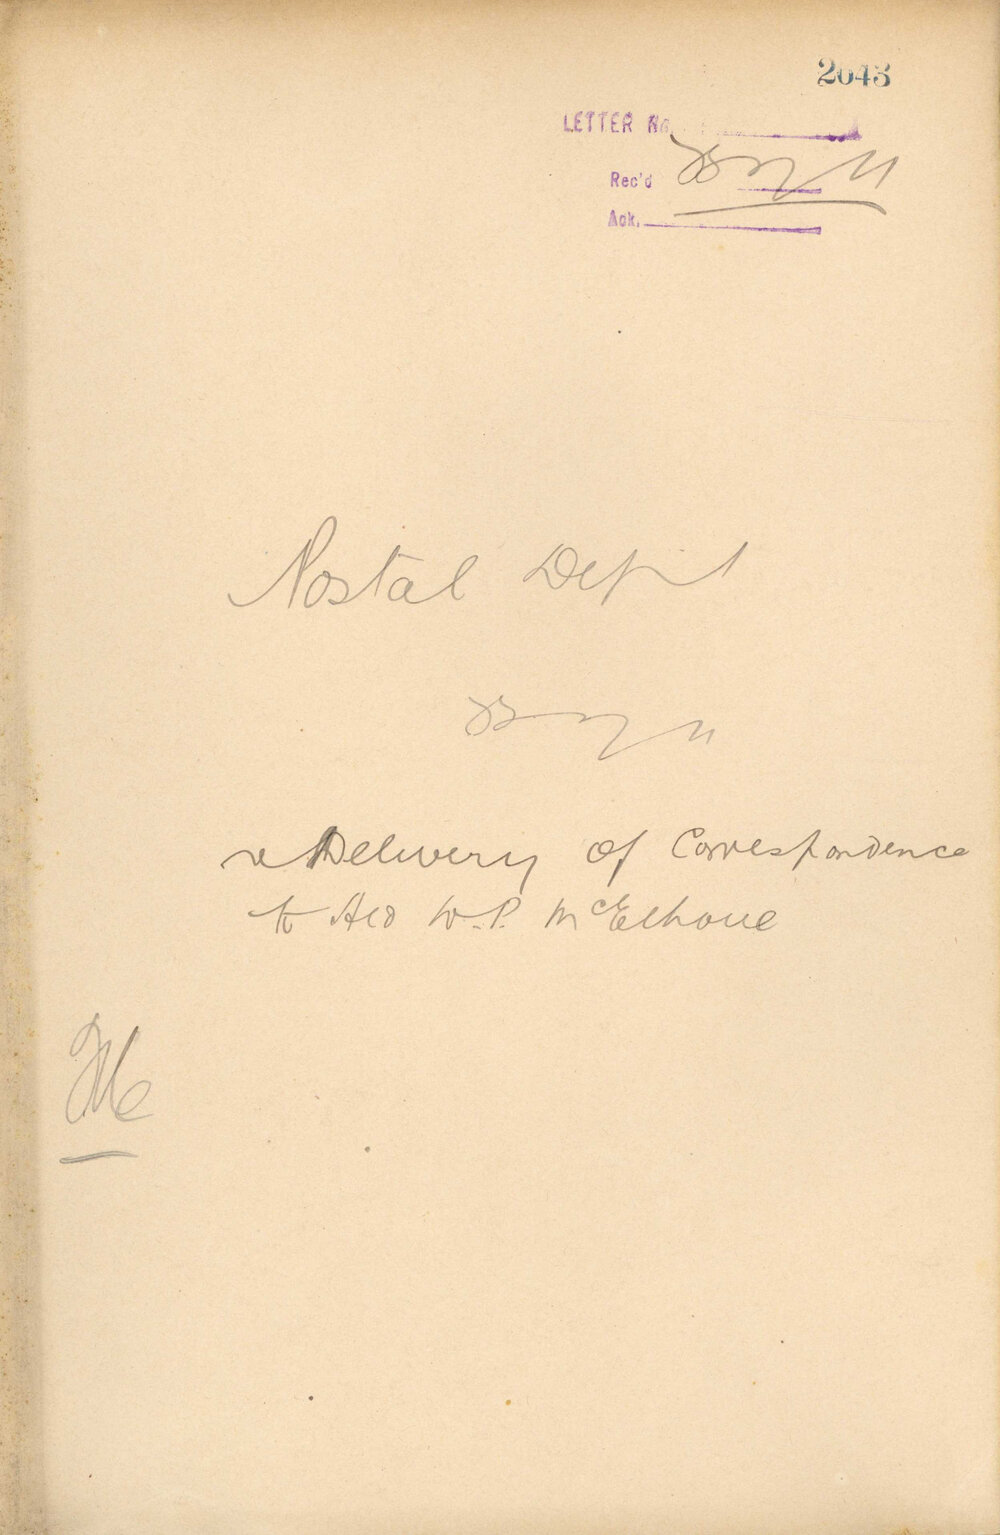 2043
LETTER No.
Rec'd
Ack.
Postal Dept
re Delivery of Correspondence
to Ald W.P. McElhone